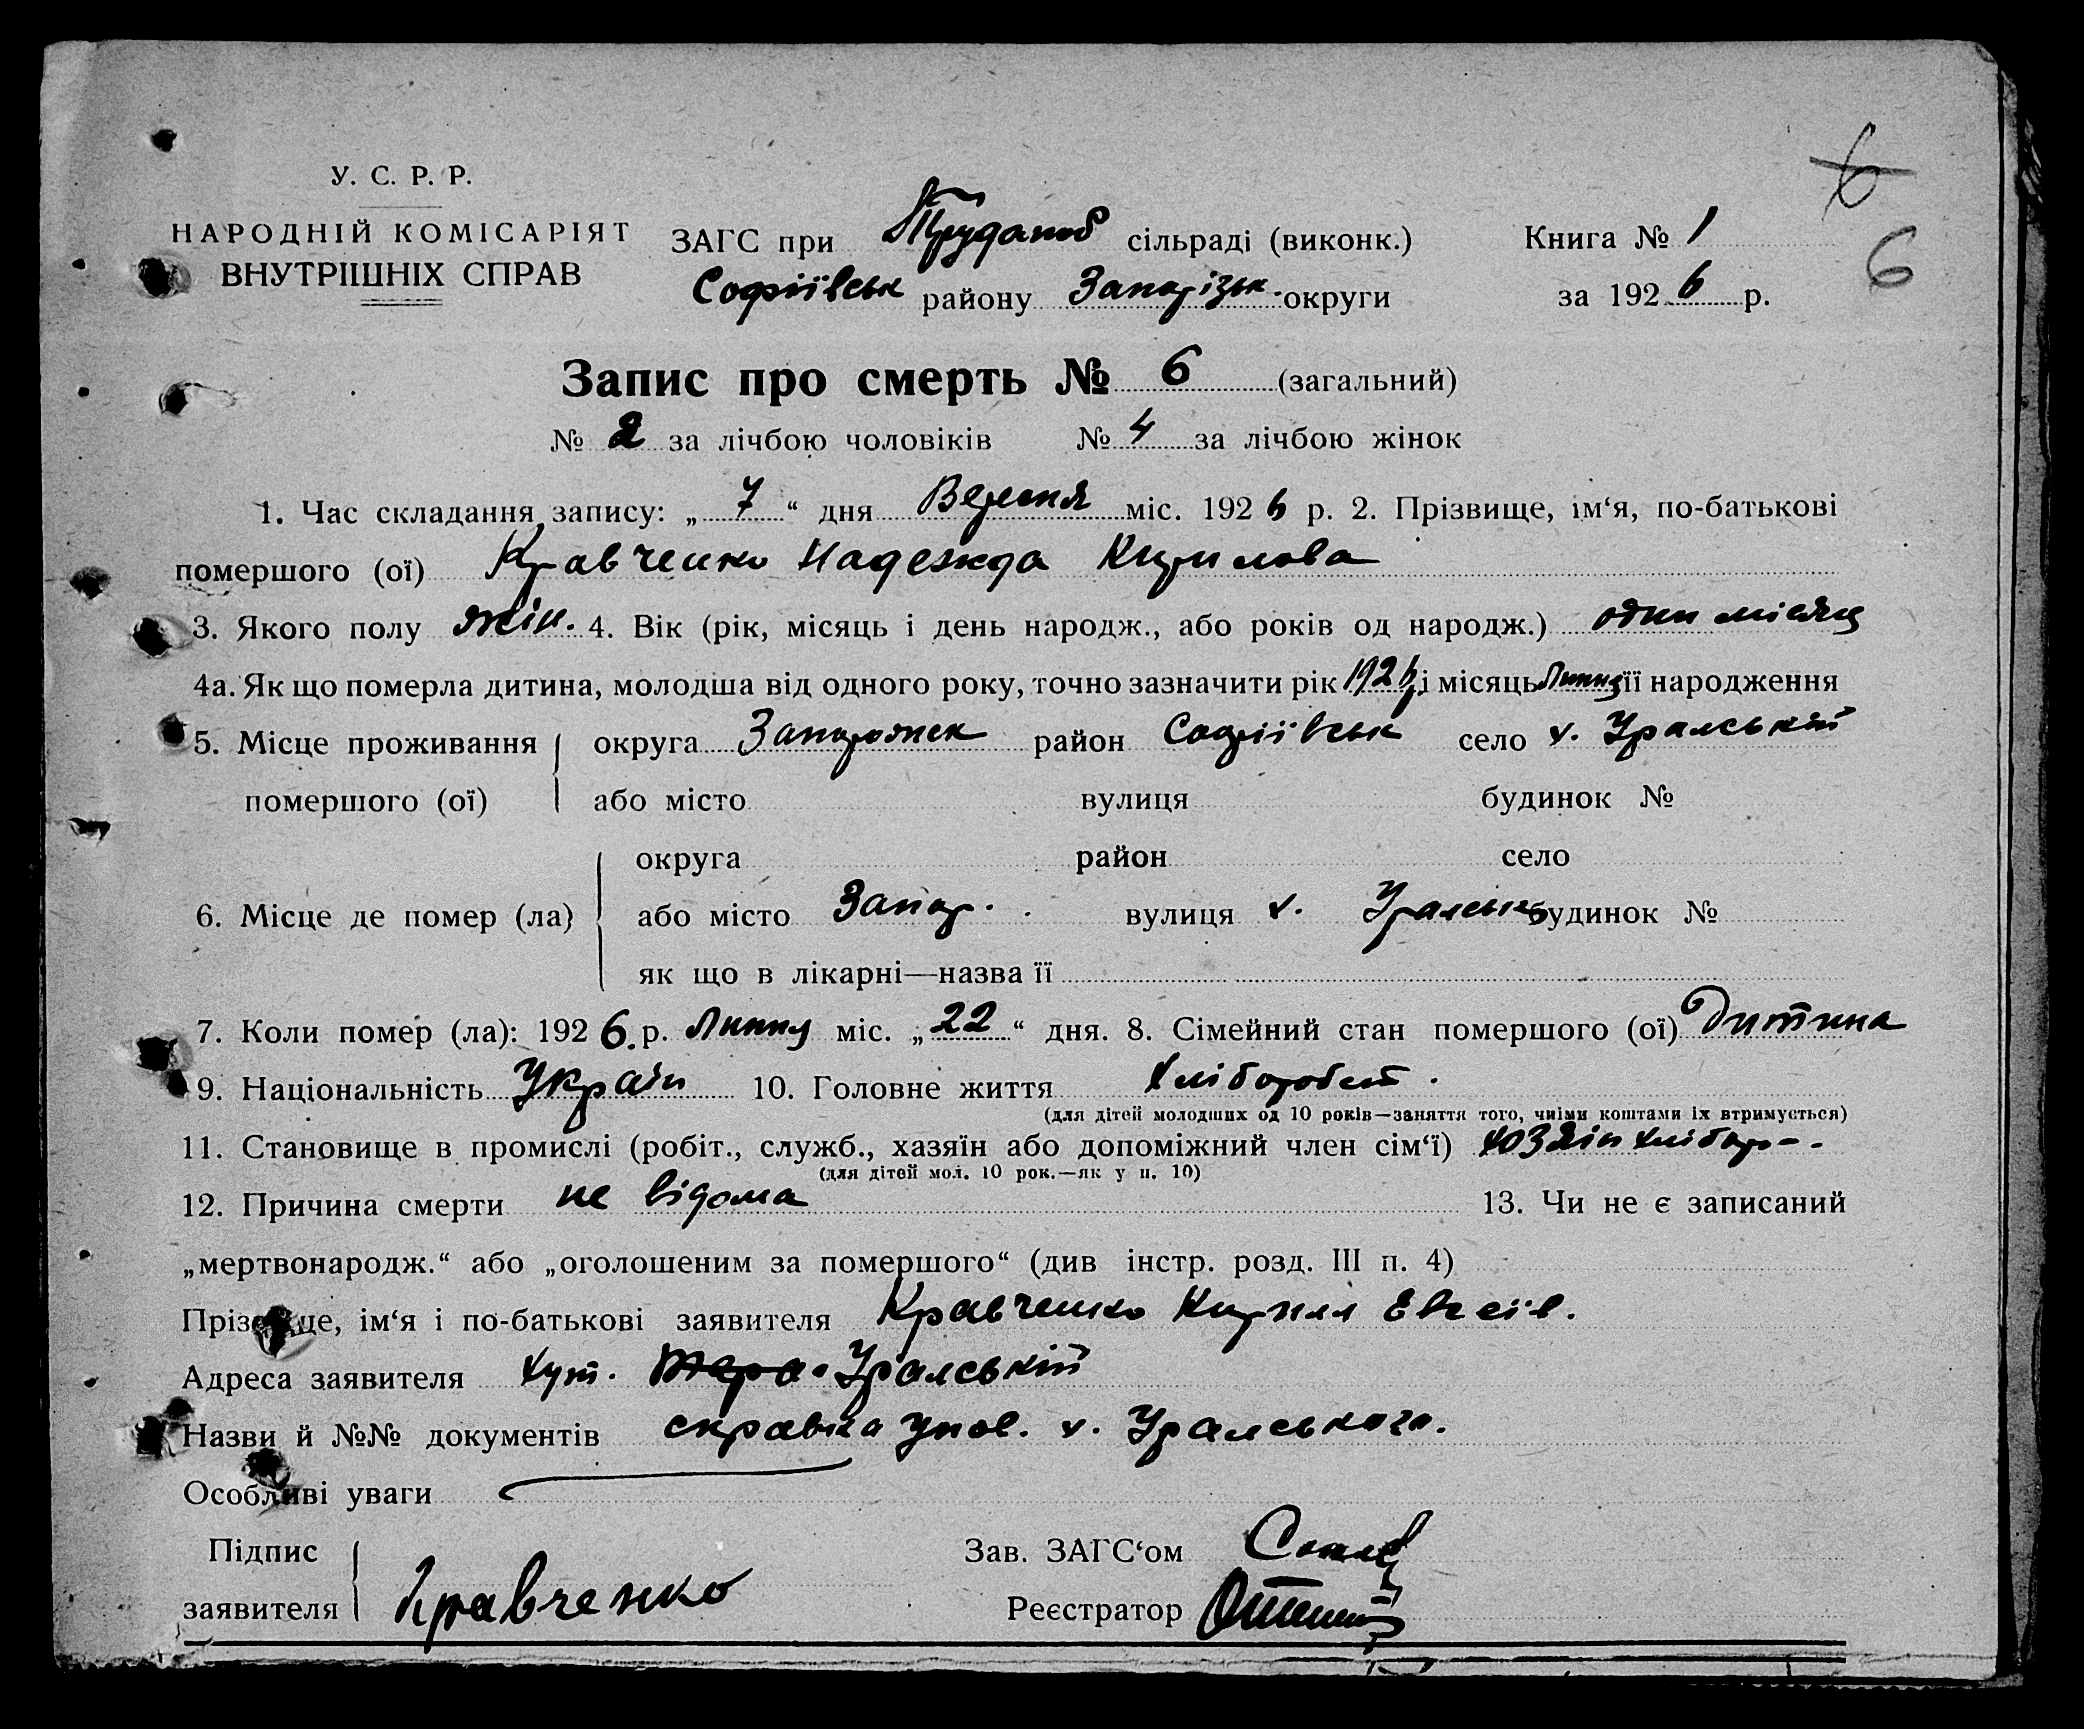 6
У. С. Р. Р.
НАРОДНІЙ КОМІСАРІЯТ
ВНУТРІШНІХ СПРАВ
ЗАГС при сільраді (виконк.) Книга № 1
6
Софіївськ району Запорізьк. округи за 1926 р.
Запис про смерть № 6 (загальний)
№ 2 за лічбою чоловіків № 4 за лічбою жінок
1. Час складання запису: „ 7 “ дня Вересня міс. 1926 р. 2. Прізвище, ім‘я, по-батькові
помершого (ої) Кравченко Надежда Кирилова
3. Якого полу жін. 4. Вік (рік, місяць і день народж., або років од народж.) один місяц
4а. Як що померла дитина, молодша від одного року, точно зазначити рік 1926 і місяць її народження
5. Місце проживання округа Запорожск район Софіївськ село х. Уралський
помершого (ої) або місто вулиця будинок №
округа район село
6. Місце де помер (ла) або місто Запор. вулиця х. Уралськ будинок №
як що в лікарні—назва її
7. Коли помер (ла): 1926. р. Липня міс. „ 22 “ дня. 8. Сімейний стан помершого (ої) Дитина
9. Національність Украін 10. Головне життя хлібороб
(для дітей молодших од 10 років—заняття того, чиїми коштами їх втримується)
11. Становище в промислі (робіт., служб., хазяїн або допоміжний член сім‘ї) хозяін хлібор-.
(для дітей мол. 10 рок.—як у п. 10)
12. Причина смерти не відома 13. Чи не є записаний
„мертвонародж.“ або „оголошеним за помершого“ (див інстр. розд. III п. 4)
Прізвище, ім‘я і по-батькові заявителя Кравченко Кирилл Евсеів.
Адреса заявителя хут. Уралській
Назви й №№ документів справка упов. х. Уралського.
Особливі уваги
Підпис Зав. ЗАГС‘ом
заявителя Кравченко Реєстратор